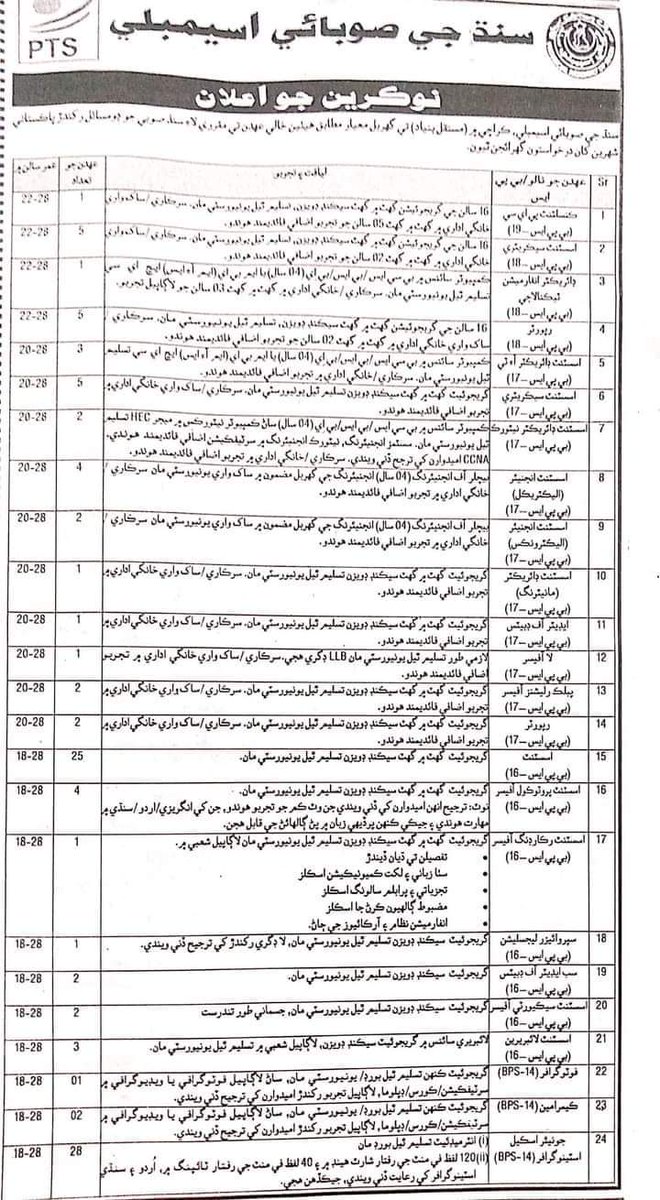 PTS
سنڌ جي صوبائي اسيمبلي
نوڪرين جو اعلان
سنڌ جي صوبائي اسيمبلي، ڪراچي ۾ (مستقل بنياد) تي گهربل معيار مطابق هيٺين خالي عهدن تي مقرري لاءِ سنڌ صوبي جو ڊوميسائل رکندڙ پاڪستاني
شهرين کان درخواستون گهرائجن ٿيون.
Sr عهدن جو نالو/بي پي ايس لياقت ۽ تجربو عهدن جو تعداد عمر سالن ۾
1 ڪنسلٽنٽ پي اي سي (بي پي ايس–19) 16 سالن جي گريجوئيشن گهٽ ۾ گهٽ سيڪنڊ ڊويزن، تسليم ٿيل يونيورسٽي مان. سرڪاري/ساک واري
خانگي اداري ۾ گهٽ ۾ گهٽ 05 سالن جو تجربو اضافي فائديمند هوندو. 1 22-28
2 اسسٽنٽ سيڪريٽري (بي پي ايس–18) 16 سالن جي گريجوئيشن گهٽ ۾ گهٽ سيڪنڊ ڊويزن، تسليم ٿيل يونيورسٽي مان. سرڪاري/ساک واري
خانگي اداري ۾ گهٽ ۾ گهٽ 02 سالن جو تجربو اضافي فائديمند هوندو. 5 22-28
3 ڊائريڪٽر انفارميشن ٽيڪنالاجي (بي پي ايس–18) ڪمپيوٽر سائنس ۾ بي سي ايس/بي ايس/بي اي (04 سال) يا ايم بي اي (ايم آءِ ايس) ايڇ اي سي
تسليم ٿيل يونيورسٽي مان. سرڪاري/خانگي اداري ۾ گهٽ ۾ گهٽ 03 سالن جو لاڳاپيل تجربو. 1 22-28
4 رپورٽر (بي پي ايس–18) 16 سالن جي گريجوئيشن گهٽ ۾ گهٽ سيڪنڊ ڊويزن، تسليم ٿيل يونيورسٽي مان. سرڪاري/
ساک واري خانگي اداري ۾ گهٽ ۾ گهٽ 02 سالن جو تجربو اضافي فائديمند هوندو. 5 22-28
5 اسسٽنٽ ڊائريڪٽر آءِ ٽي (بي پي ايس–17) ڪمپيوٽر سائنس ۾ بي سي ايس/بي ايس/بي اي (04 سال) يا ايم بي اي (ايم آءِ ايس) ايڇ اي سي تسليم
ٿيل يونيورسٽي مان. سرڪاري/خانگي اداري ۾ تجربو اضافي فائديمند هوندو. 3 20-28
6 اسسٽنٽ سيڪريٽري (بي پي ايس–17) گريجوئيٽ گهٽ ۾ گهٽ سيڪنڊ ڊويزن، تسليم ٿيل يونيورسٽي مان. سرڪاري/ساک واري خانگي اداري ۾
تجربو اضافي فائديمند هوندو. 5 20-28
7 اسسٽنٽ ڊائريڪٽر نيٽورڪ (بي پي ايس–17) ڪمپيوٽر سائنس ۾ بي سي ايس/بي ايس/بي اي (04 سال) ساڻ ڪمپيوٽر نيٽورڪس ۾ ميجر HEC تسليم
ٿيل يونيورسٽي مان. سسٽمز انجنيئرنگ، نيٽورڪ انجنيئرنگ ۾ سرٽيفڪيشن اضافي فائديمند هوندي.
CCNA اميدوارن کي ترجيح ڏني ويندي. سرڪاري/خانگي اداري ۾ تجربو اضافي فائديمند هوندو. 2 20-28
8 اسسٽنٽ انجنيئر (اليڪٽريڪل) (بي پي ايس–17) بيچلر آف انجنيئرنگ (04 سال) انجنيئرنگ جي گهربل مضمون ۾ ساک واري يونيورسٽي مان سرڪاري/
خانگي اداري ۾ تجربو اضافي فائديمند هوندو. 4 20-28
9 اسسٽنٽ انجنيئر (اليڪٽرونڪس) (بي پي ايس–17) بيچلر آف انجنيئرنگ (04 سال) انجنيئرنگ جي گهربل مضمون ۾ ساک واري يونيورسٽي مان. سرڪاري/
خانگي اداري ۾ تجربو اضافي فائديمند هوندو. 2 20-28
10 اسسٽنٽ ڊائريڪٽر (مانيٽرنگ) (بي پي ايس–17) گريجوئيٽ گهٽ ۾ گهٽ سيڪنڊ ڊويزن تسليم ٿيل يونيورسٽي مان. سرڪاري/ساک واري خانگي اداري ۾
تجربو اضافي فائديمند هوندو. 1 20-28
11 ايڊيٽر آف ڊبيٽس (بي پي ايس–17) گريجوئيٽ گهٽ ۾ گهٽ سيڪنڊ ڊويزن تسليم ٿيل يونيورسٽي مان. سرڪاري/ساک واري خانگي اداري ۾
تجربو اضافي فائديمند هوندو. 1 20-28
12 لا آفيسر (بي پي ايس–17) لازمي طور تسليم ٿيل يونيورسٽي مان LLB ڊگري هجي. سرڪاري/ساک واري خانگي اداري ۾ تجربو
اضافي فائديمند هوندو. 1 20-28
13 پبلڪ رليشنز آفيسر (بي پي ايس–17) گريجوئيٽ گهٽ ۾ گهٽ سيڪنڊ ڊويزن تسليم ٿيل يونيورسٽي مان. سرڪاري/ساک واري خانگي اداري ۾
تجربو اضافي فائديمند هوندو. 2 20-28
14 رپورٽر (بي پي ايس–17) گريجوئيٽ گهٽ ۾ گهٽ سيڪنڊ ڊويزن تسليم ٿيل يونيورسٽي مان. سرڪاري/ساک واري خانگي اداري ۾
تجربو اضافي فائديمند هوندو. 2 20-28
15 اسسٽنٽ (بي پي ايس–16) گريجوئيٽ گهٽ ۾ گهٽ سيڪنڊ ڊويزن تسليم ٿيل يونيورسٽي مان. 25 18-28
16 اسسٽنٽ پروٽوڪول آفيسر (بي پي ايس–16) گريجوئيٽ گهٽ ۾ گهٽ سيڪنڊ ڊويزن تسليم ٿيل يونيورسٽي مان.
نوٽ: ترجيح انهن اميدوارن کي ڏني ويندي جن وٽ ڪم جو تجربو هوندو، جن کي انگريزي/اردو/سنڌي ۾
مهارت هوندي ۽ جيڪي ڪنهن پرڏيهي زبان ۾ پڻ ڳالهائڻ جي قابل هجن. 4 18-28
17 اسسٽنٽ رڪارڊنگ آفيسر (بي پي ايس–16) گريجوئيٽ گهٽ ۾ گهٽ سيڪنڊ ڊويزن تسليم ٿيل يونيورسٽي مان لاڳاپيل شعبي ۾. 1 18-28
• تفصيلن تي ڌيان ڏيندڙ
• سٺا زباني ۽ لکت ڪميونيڪيشن اسڪلز
• تجزياتي ۽ پرابلم سالونگ اسڪلز
• مضبوط ڳالهيون ڪرڻ جا اسڪلز
• انفارميشن نظام ۽ آرڪائيوز جي ڄاڻ.
18 سپروائيزر ليجسليشن (بي پي ايس–16) گريجوئيٽ سيڪنڊ ڊويزن تسليم ٿيل يونيورسٽي مان، لا ڊگري رکندڙ کي ترجيح ڏني ويندي. 1 18-28
19 سب ايڊيٽر آف ڊبيٽس (بي پي ايس–16) گريجوئيٽ سيڪنڊ ڊويزن تسليم ٿيل يونيورسٽي مان. 2 18-28
20 اسسٽنٽ سيڪيورٽي آفيسر (بي پي ايس–16) گريجوئيٽ سيڪنڊ ڊويزن تسليم ٿيل يونيورسٽي مان، جسماني طور تندرست 2 18-28
21 اسسٽنٽ لائبريرين (بي پي ايس–16) لائبريري سائنس ۾ گريجوئيٽ سيڪنڊ ڊويزن، لاڳاپيل شعبي ۾ تسليم ٿيل يونيورسٽي مان. 3 18-28
22 فوٽوگرافر (BPS-14) گريجوئيٽ ڪنهن تسليم ٿيل بورڊ/يونيورسٽي مان، ساڻ لاڳاپيل فوٽوگرافي يا وڊيوگرافي ۾
سرٽيفڪيشن/ڪورس/ڊپلوما، لاڳاپيل تجربو رکندڙ اميدوارن کي ترجيح ڏني ويندي. 01 18-28
23 ڪيمرامين (BPS-14) گريجوئيٽ ڪنهن تسليم ٿيل بورڊ/يونيورسٽي مان، ساڻ لاڳاپيل فوٽوگرافي يا وڊيوگرافي ۾
سرٽيفڪيشن/ڪورس/ڊپلوما، لاڳاپيل تجربو رکندڙ اميدوارن کي ترجيح ڏني ويندي. 02 18-28
24 جونيئر اسڪيل اسٽينوگرافر (BPS-14) (i) انٽرميڊيٽ تسليم ٿيل بورڊ مان
(ii) 120 لفظ في منٽ جي رفتار شارٽ هينڊ ۾ ۽ 40 لفظ في منٽ جي رفتار ٽائپنگ ۾، اُردو ۽ سنڌي
اسٽينوگرافر کي رعايت ڏني ويندي، جيڪڏهن هجي. 28 18-28